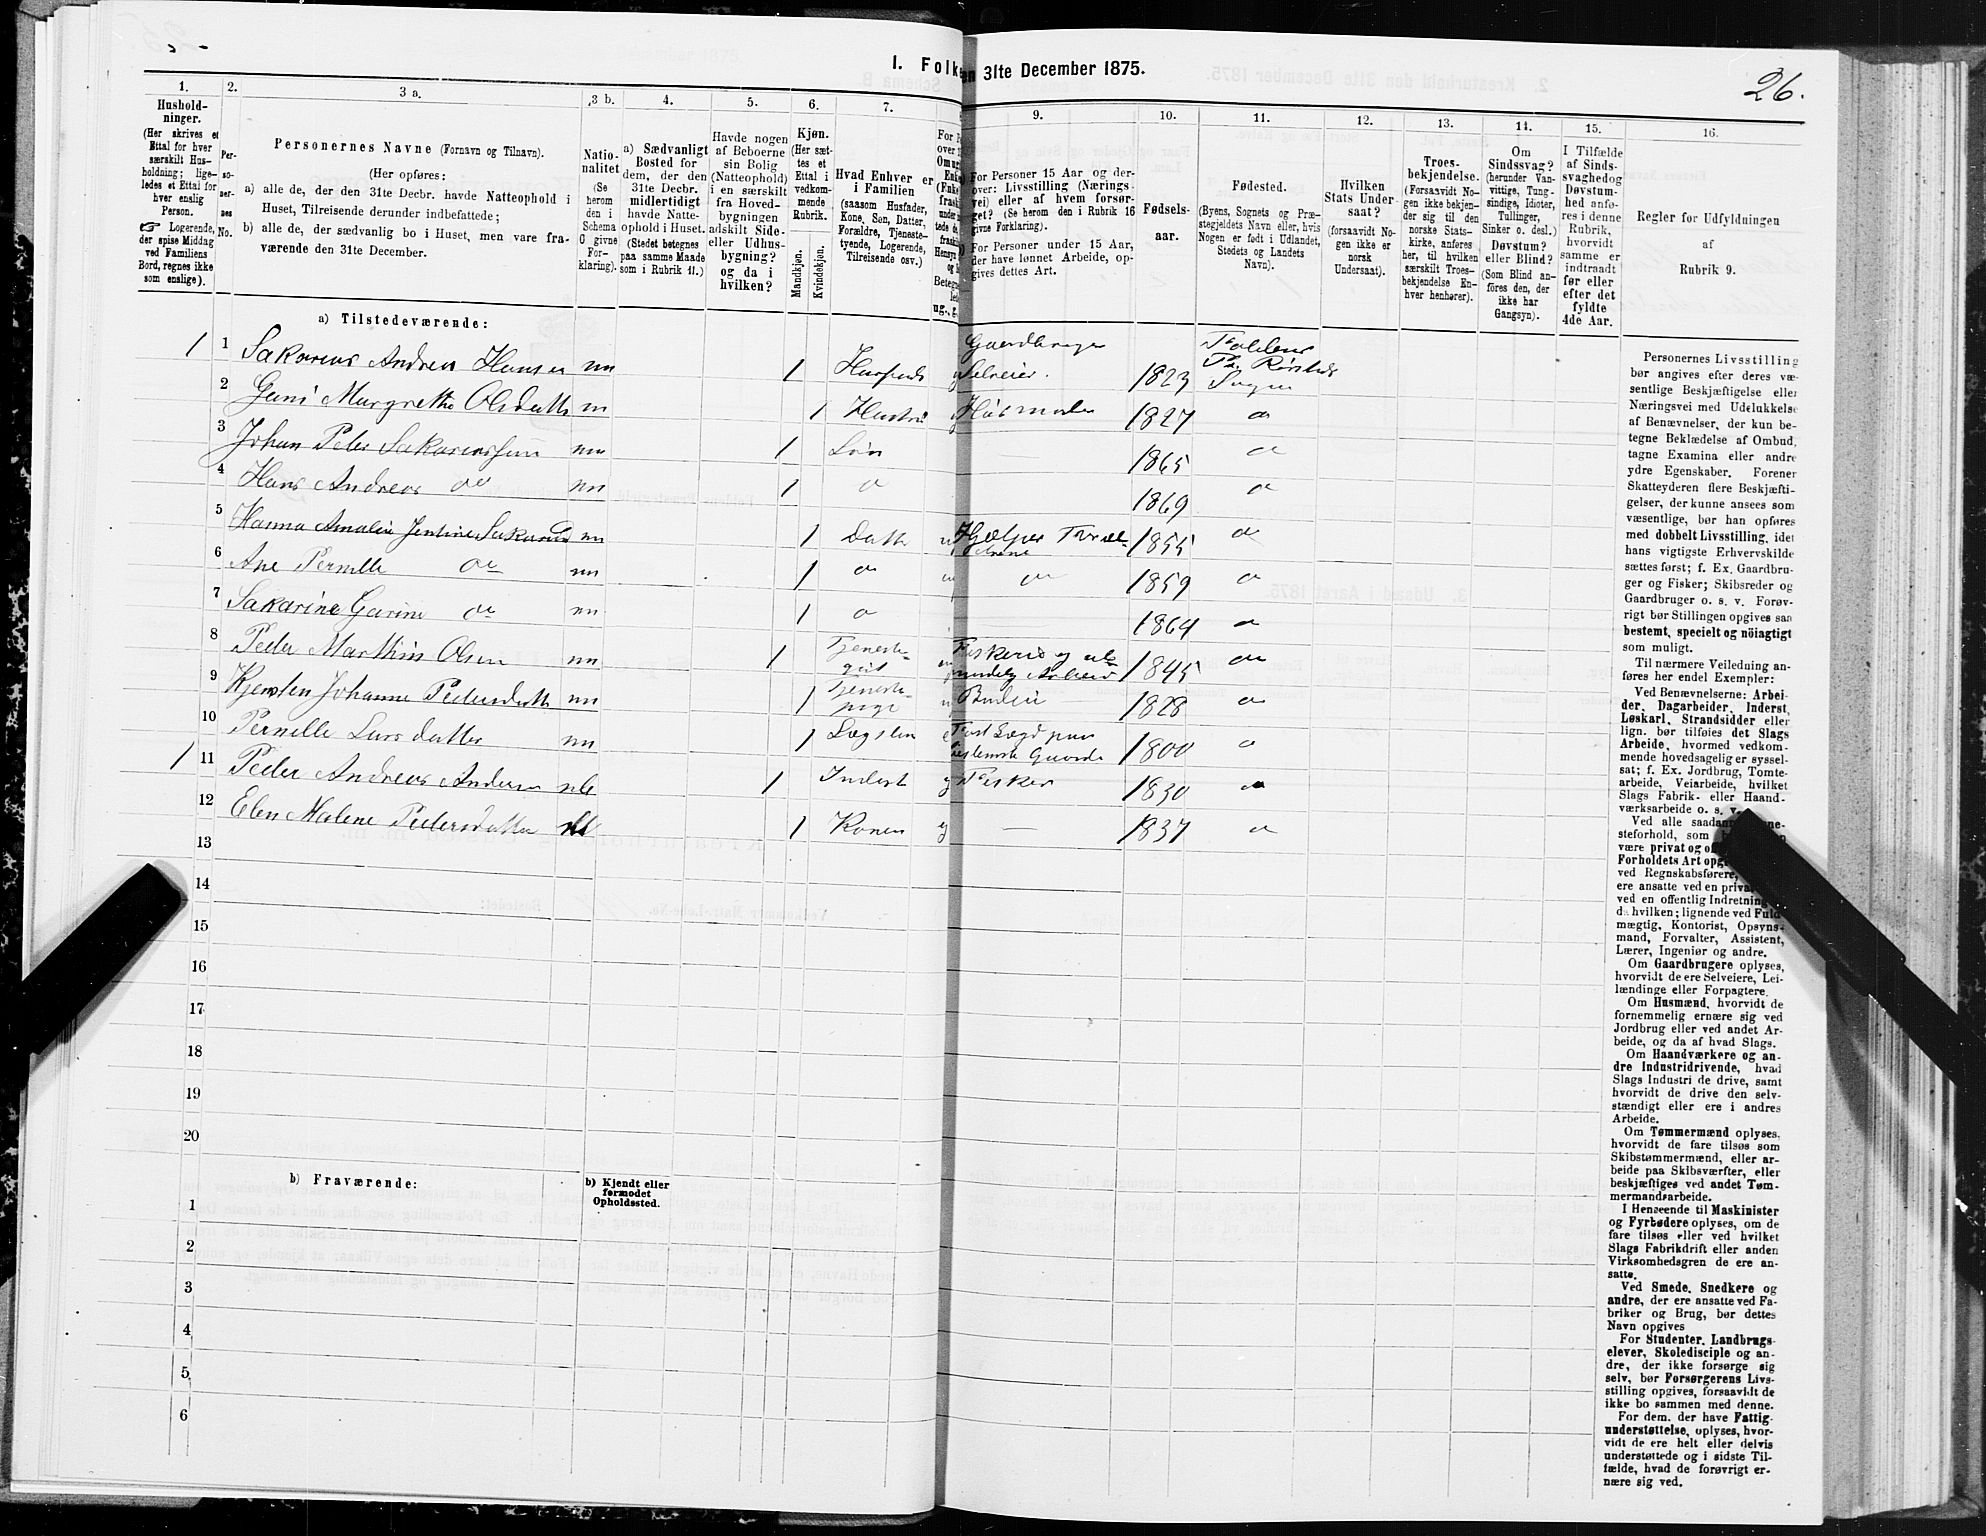 I. Folke
en 31te December 1875.
26.
1.
Hushold-
ninger.
(Her skrives et
Ettal for hver
særskilt Hus-
holdning; lige-
ledes et Ettal for
hver enslig
Person.
☞ Logerende,
der spise Middag
ved Familiens
Bord, regnes ikke
som enslige).
2.
Per-
so-
ner-
nes
No.
3 a.
Personernes Navne (Fornavn og Tilnavn).
(Her opføres:
a) alle de, der den 31te Decbr. havde Natteophold i
Huset, Tilreisende derunder indbefattede;
b) alle de, der sædvanlig bo i Huset, men vare fra-
værende den 31te December.
3 b.
Natio-
nalitet
(Se
herom
den i
Schema
O givne
For-
klaring).
4.
a) Sædvanligt
Bosted for
dem, der den
31te Decbr.
midlertidigt
havde Natte-
ophold i Huset.
(Stedet betegnes
paa samme Maade
som i Rubrik 11.)
5.
Havde nogen
af Beboerne
sin Bolig
(Natteophold)
i en særskilt
fra Hoved-
bygningen
adskilt Side-
eller Udhus-
bygning?
og da i
hvilken?
6.
Kjøn.
(Her sæt-
tes et
Ettal i
vedkom-
mende
Rubrik.
Mandkjøn.
Kvindekjøn.
7.
Hvad Enhver er
i Familien
(saasom Husfader,
Kone, Søn, Datter,
Forældre, Tjeneste-
tyende, Logerende,
Tilreisende osv.)
9.
For Personer 15 Aar og der-
over: Livsstilling (Nærings-
vei) eller af hvem forsør-
get? (Se herom den i Rubrik 16
givne Forklaring).
For Personer under 15 Aar,
der have lønnet Arbeide, op-
gives dettes Art.
10.
Fødsels-
aar.
11.
Fødested.
(Byens, Sognets og Præ-
stegjeldets Navn eller, hvis
Nogen er født i Udlandet,
Stedets og Landets
Navn).
12.
Hvilken
Stats Under-
saat?
(forsaavidt No-
gen ikke er
norsk
Undersaat).
13.
Troes-
bekjendelse.
(Forsaavidt No-
gen ikke bekjen-
der sig til den
norske Stats-
kirke, anføres
her, til hvilken
særskilt Troes-
bekjendelse En-
hver henhører).
14.
Om
Sindssvag?
(herunder Van-
vittige, Tung-
sindige, Idioter,
Tullinger,
Sinker o. desl.)
Døvstum?
eller Blind?
(Som Blind an-
føres den, der
ikke har
Gangsyn).
15.
I Tilfælde
af Sinds-
svaghedog
Døvstum-
hed anfø-
res i denne
Rubrik,
hvorvidt
samme er
indtraadt
før eller
efter det
fyldte
4de Aar.
16.
Regler for Udfyldningen
af
Rubrik 9.
a) Tilstedeværende:
1 1 Sakarias Andreas Hansen nn 1 Selveier. 1823
2 Margrethe Olsdatter n 1 Hustru 1827
3 Johan Peter Sakariassen nn 1 Søn 1865
4 Hans Andreas nn 1 1869
5 Hanna Amalie Jentine nn 1 Datter 1855
6 Ane Pernille nn 1 1859
7 Sakarine nn 1 1864
8 Peder Marthin Olsen nn 1 Tjeneste- 1845
9 Johanne Pedersdatter nn 1 Tjeneste- Budeie 1828
10 Pernille Larsdatter nn 1 1800
1 11 Peder Andreas Andersen 1 Inderst Fisker 1830
12 Elen Malene Pedersdatter 1 Konen 1837
13
14
15
16
17
18
19
20
b) Fraværende:
b) Kjendt eller
formodet
Opholdssted.
1
2
3
4
5
6
Personernes Livsstilling
bør angives efter deres væ-
sentlige Beskjæftigelse eller
Næringsvei med Udelukkelse
af Benævnelser, der kun be-
tegne Beklædelse af Ombud,
tagne Examina eller andre
ydre Egenskaber. Forener
Skatteyderen flere Beskjæfti-
gelser, der kunne ansees som
væsentlige, bør han opføres
med dobbelt Livsstilling, idet
hans vigtigste Erhvervskilde
sættes først; f. Ex. Gaardbru-
ger og Fisker; Skibsreder og
Gaardbruger o. s. v. Forøv-
rigt bør Stillingen opgives saa
bestemt, specielt og nöiagtigt
som muligt.
Til nærmere Veiledning an-
føres her endel Exempler:
Ved Benævnelserne: Arbei-
der, Dagarbeider, Inderst,
Løskarl, Strandsidder eller
lign. bør tilføies det Slags
Arbeide, hvormed vedkom-
mende hovedsagelig er syssel-
sat; f. Ex. Jordbrug, Tomte-
arbeide, Veiarbeide, hvilket
Slags Fabrik- eller Haand-
værksarbeide o. s. v.
Ved alle
steforhold, som
være privat og
Forholdets Art
ved Regnskabsførere,
ere ansatte ved en
ved en offentlig Indretning
da hvilken; lignende ved Fuld-
mægtig, Kontorist, Opsyns-
mand, Forvalter, Assistent,
Lærer, Ingeniør og andre.
Om Gaardbrugere oplyses,
hvorvidt de ere Selveiere, Lei-
lændinge eller Forpagtere.
Om Husmænd, hvorvidt de
fornemmelig ernære sig ved
Jordbrug eller ved andet Ar-
beide, og da af hvad Slags.
Om Haandværkere og an-
dre Industridrivende, hvad
Slags Industri de drive, samt
hvorvidt de drive den selv-
stændigt eller ere i andres
Arbeide.
Om Tømmermænd oplyses,
hvorvidt de fare tilsøs som
Skibstømmermænd, eller ar-
beide paa Skibsværfter, eller
beskjæftiges ved andet Tøm-
mermandsarbeide.
I Henseende til Maskinister
og Fyrbødere oplyses, om de
fare tilsøs eller ved hvilket
Slags Fabrikdrift eller anden
Virksomhedsgren de ere an-
satte.
Ved Smede, Snedkere og
andre, der ere ansatte ved Fa-
briker og Brug, bør dettes
Navn opgives
For Studenter, Landbrugs-
elever, Skoledisciple og an-
dre, der ikke forsørge sig
selv, bør Forsørgerens Livs-
stilling opgives, forsaavidt de
ikke bo sammen med denne.
For dem, der have Fattig-
understøttelse, oplyses, hvor-
vidt de ere helt eller delvis
understøttede og i sidste Til-
fælde, hvad de forøvrigt er-
nære sig ved.